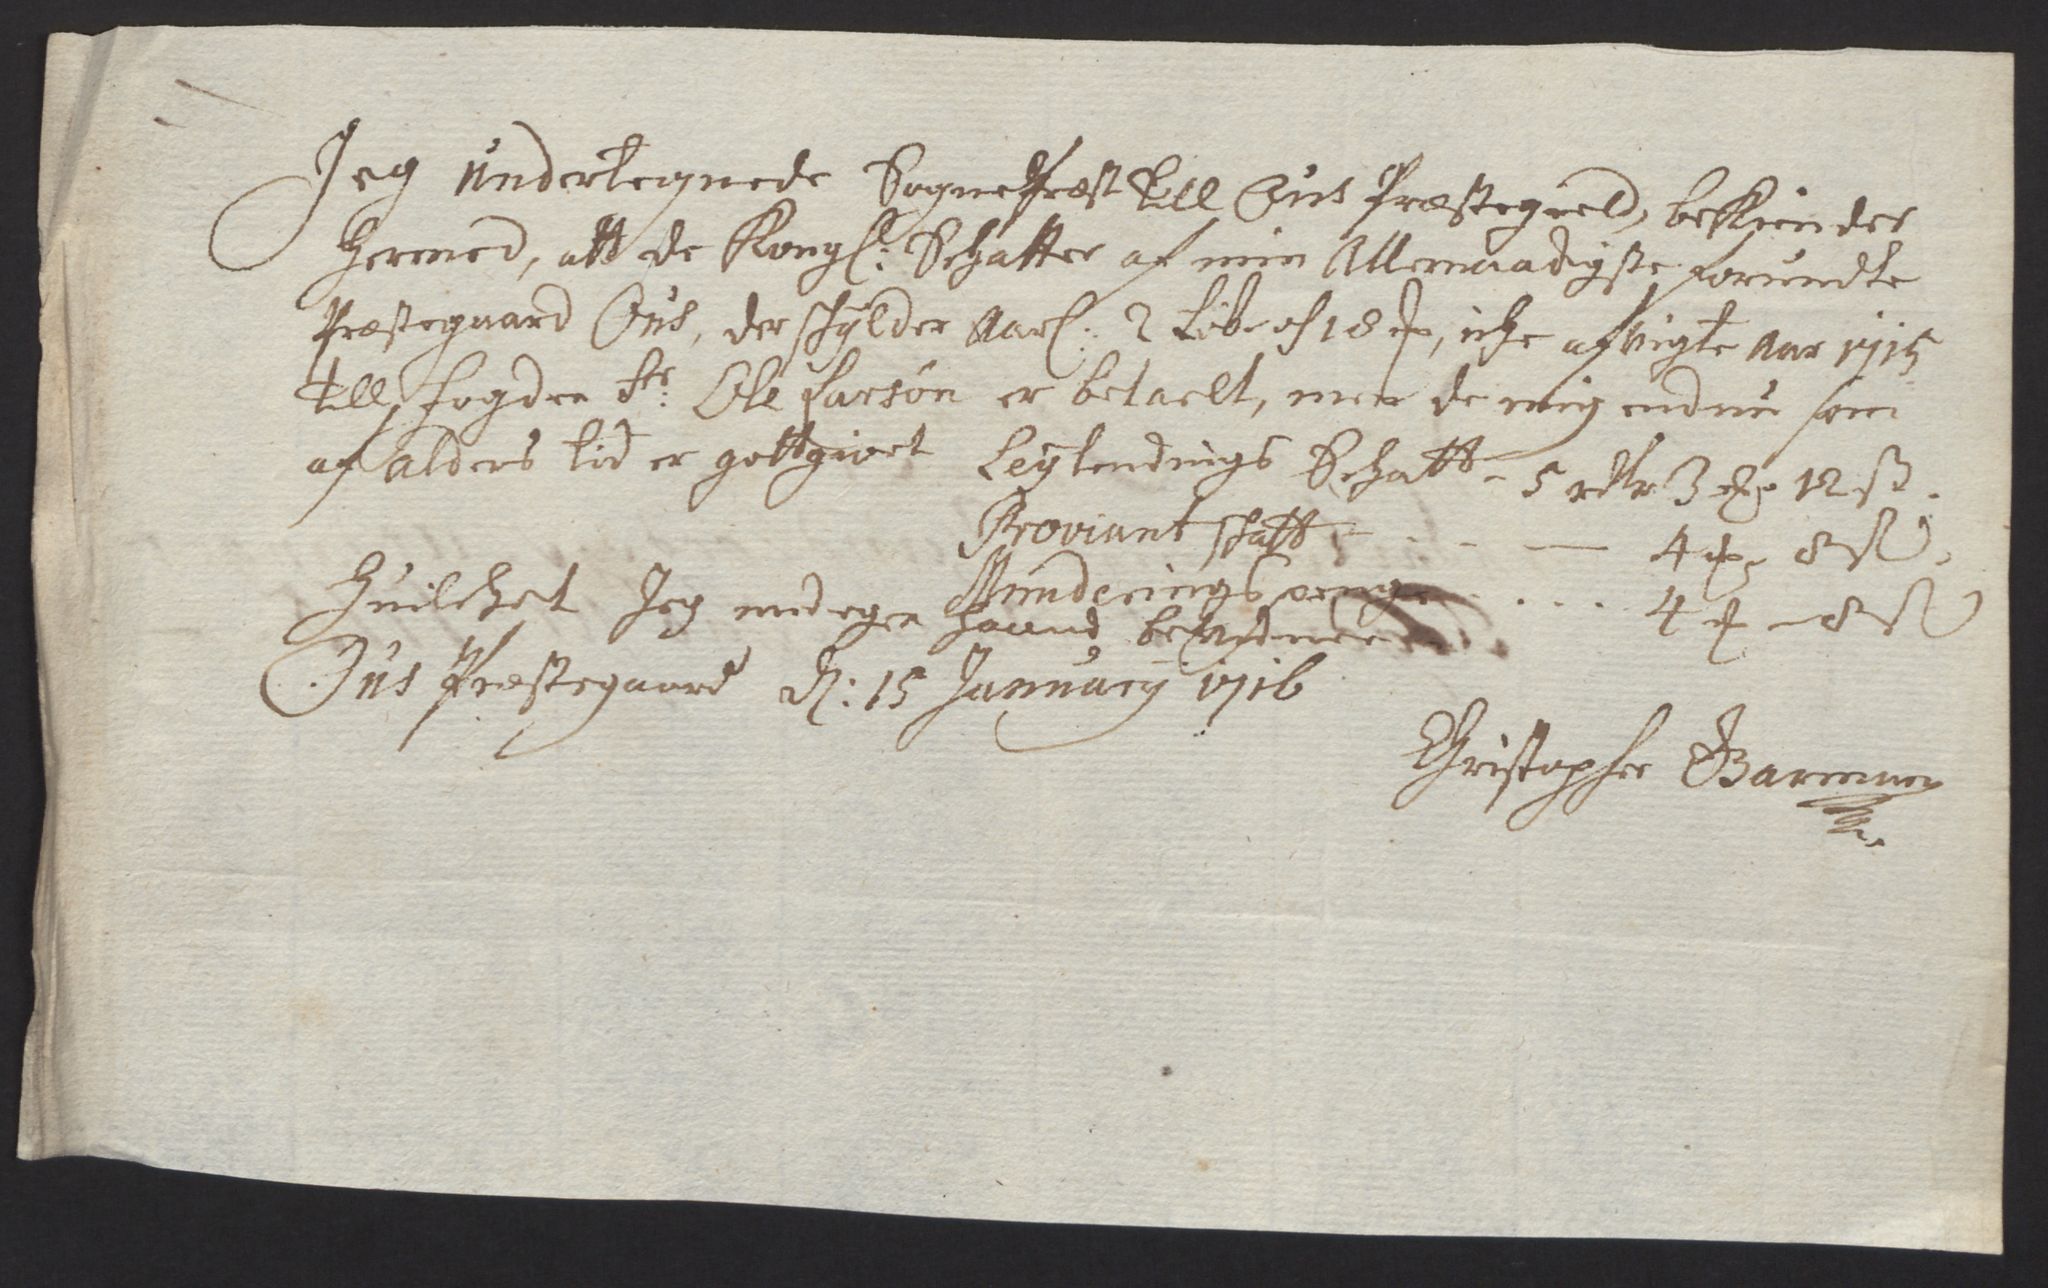 Jeg Undertegnede SognePræst till Ous Præstegield, beKiender
hermed, att de Kongl: Schatter af min Allernaadigste forundte
Præstegaard Ous, der schylder Aarl: 2 Løbe og 18 , iche afvigte Aar 1715
till fogden Sr: Ole Larsøn er betaelt, men de mig endnu som
af alders tid er gottgiort Leylendings Schatt - 5 rdlr 3 12 ß.
Proviant schatt - - - - 4 8 ß.
Munderings penge . . . . 4 - 8 ß
Huilchet Jeg med egen haand bekredner
Ous Præstegaard d: 15 January 1716
Christopher